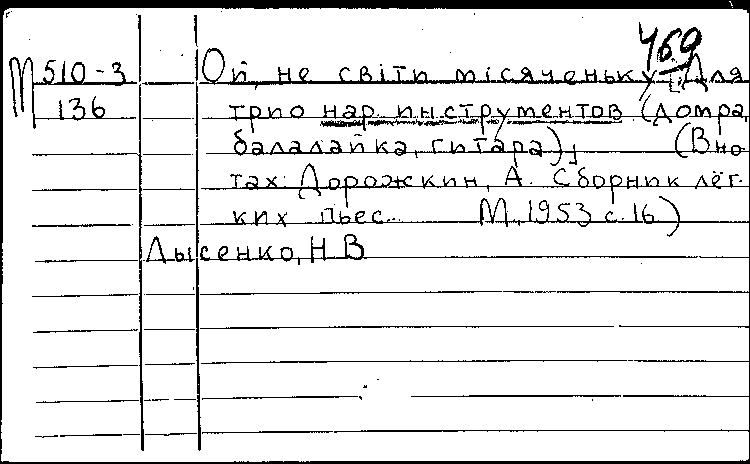 469
М 510-3
136
Ой, не світи місяченьку [Для
трио нар. инструментов (домра,
балалайка, гитара)] (В но-
тах: Дорожкин, А. Сборник лёг-
ких пьес. М., 1953 с. 16)
Лысенко, Н. В